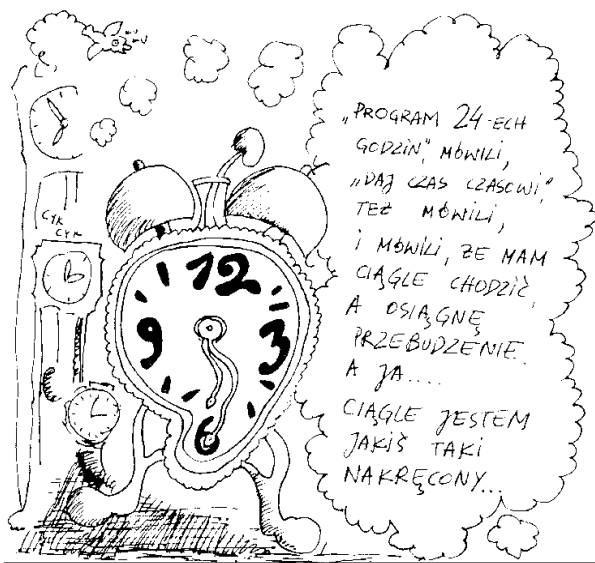 „PROGRAM 24-ECH
GODZIN", MÓWILI,
„DAJ CZAS CZASOWI",
TEŻ MÓWILI,
I MÓWILI, ŻE MAM
CIĄGLE CHODZIĆ,
A OSIĄGNĘ
PRZEBUDZENIE.
A JA....
CIĄGLE JESTEM
JAKIŚ TAKI
NAKRĘCONY...
CYK
CYK
12
3
6
9